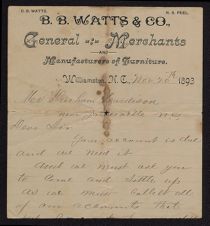 B. B. WATTS. N. S. PEEL.
B. B. WATTS & CO.,
General Merchants
AND
Manufacturers of Furniture.
Williamston, N. C., Nov 20th 1893
Mr
near
Dear Sir
Your account is due
and we need it
and we must ask you
to come and settle up
as we must collect all
of our accounts that